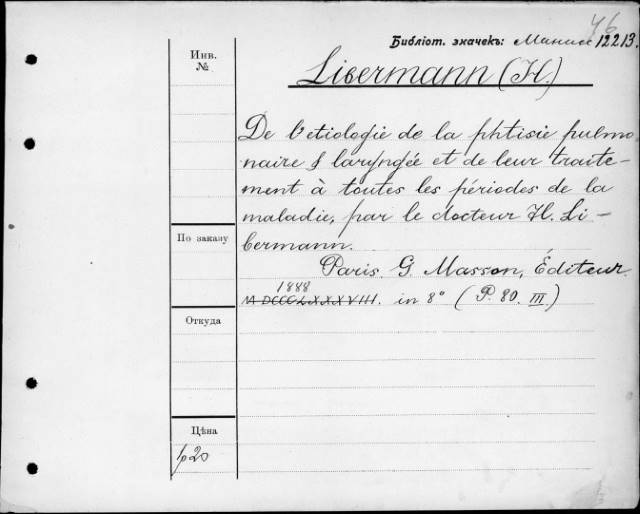 46
Библіот. значекъ: 12213.
Инв.
№
Libermann (H.)
De l'etiologie de la phtisie pulmo
naire & laryngée et de leur traite-
ment à toutes les périodes de la
maladie, par le docteur H. Li-
bermann.
По заказу
Paris. G. Masson, Éditeur.
1888
MDCCCLXXXVIII. in 8° (P. 80. III)
Откуда
Цѣна
р20